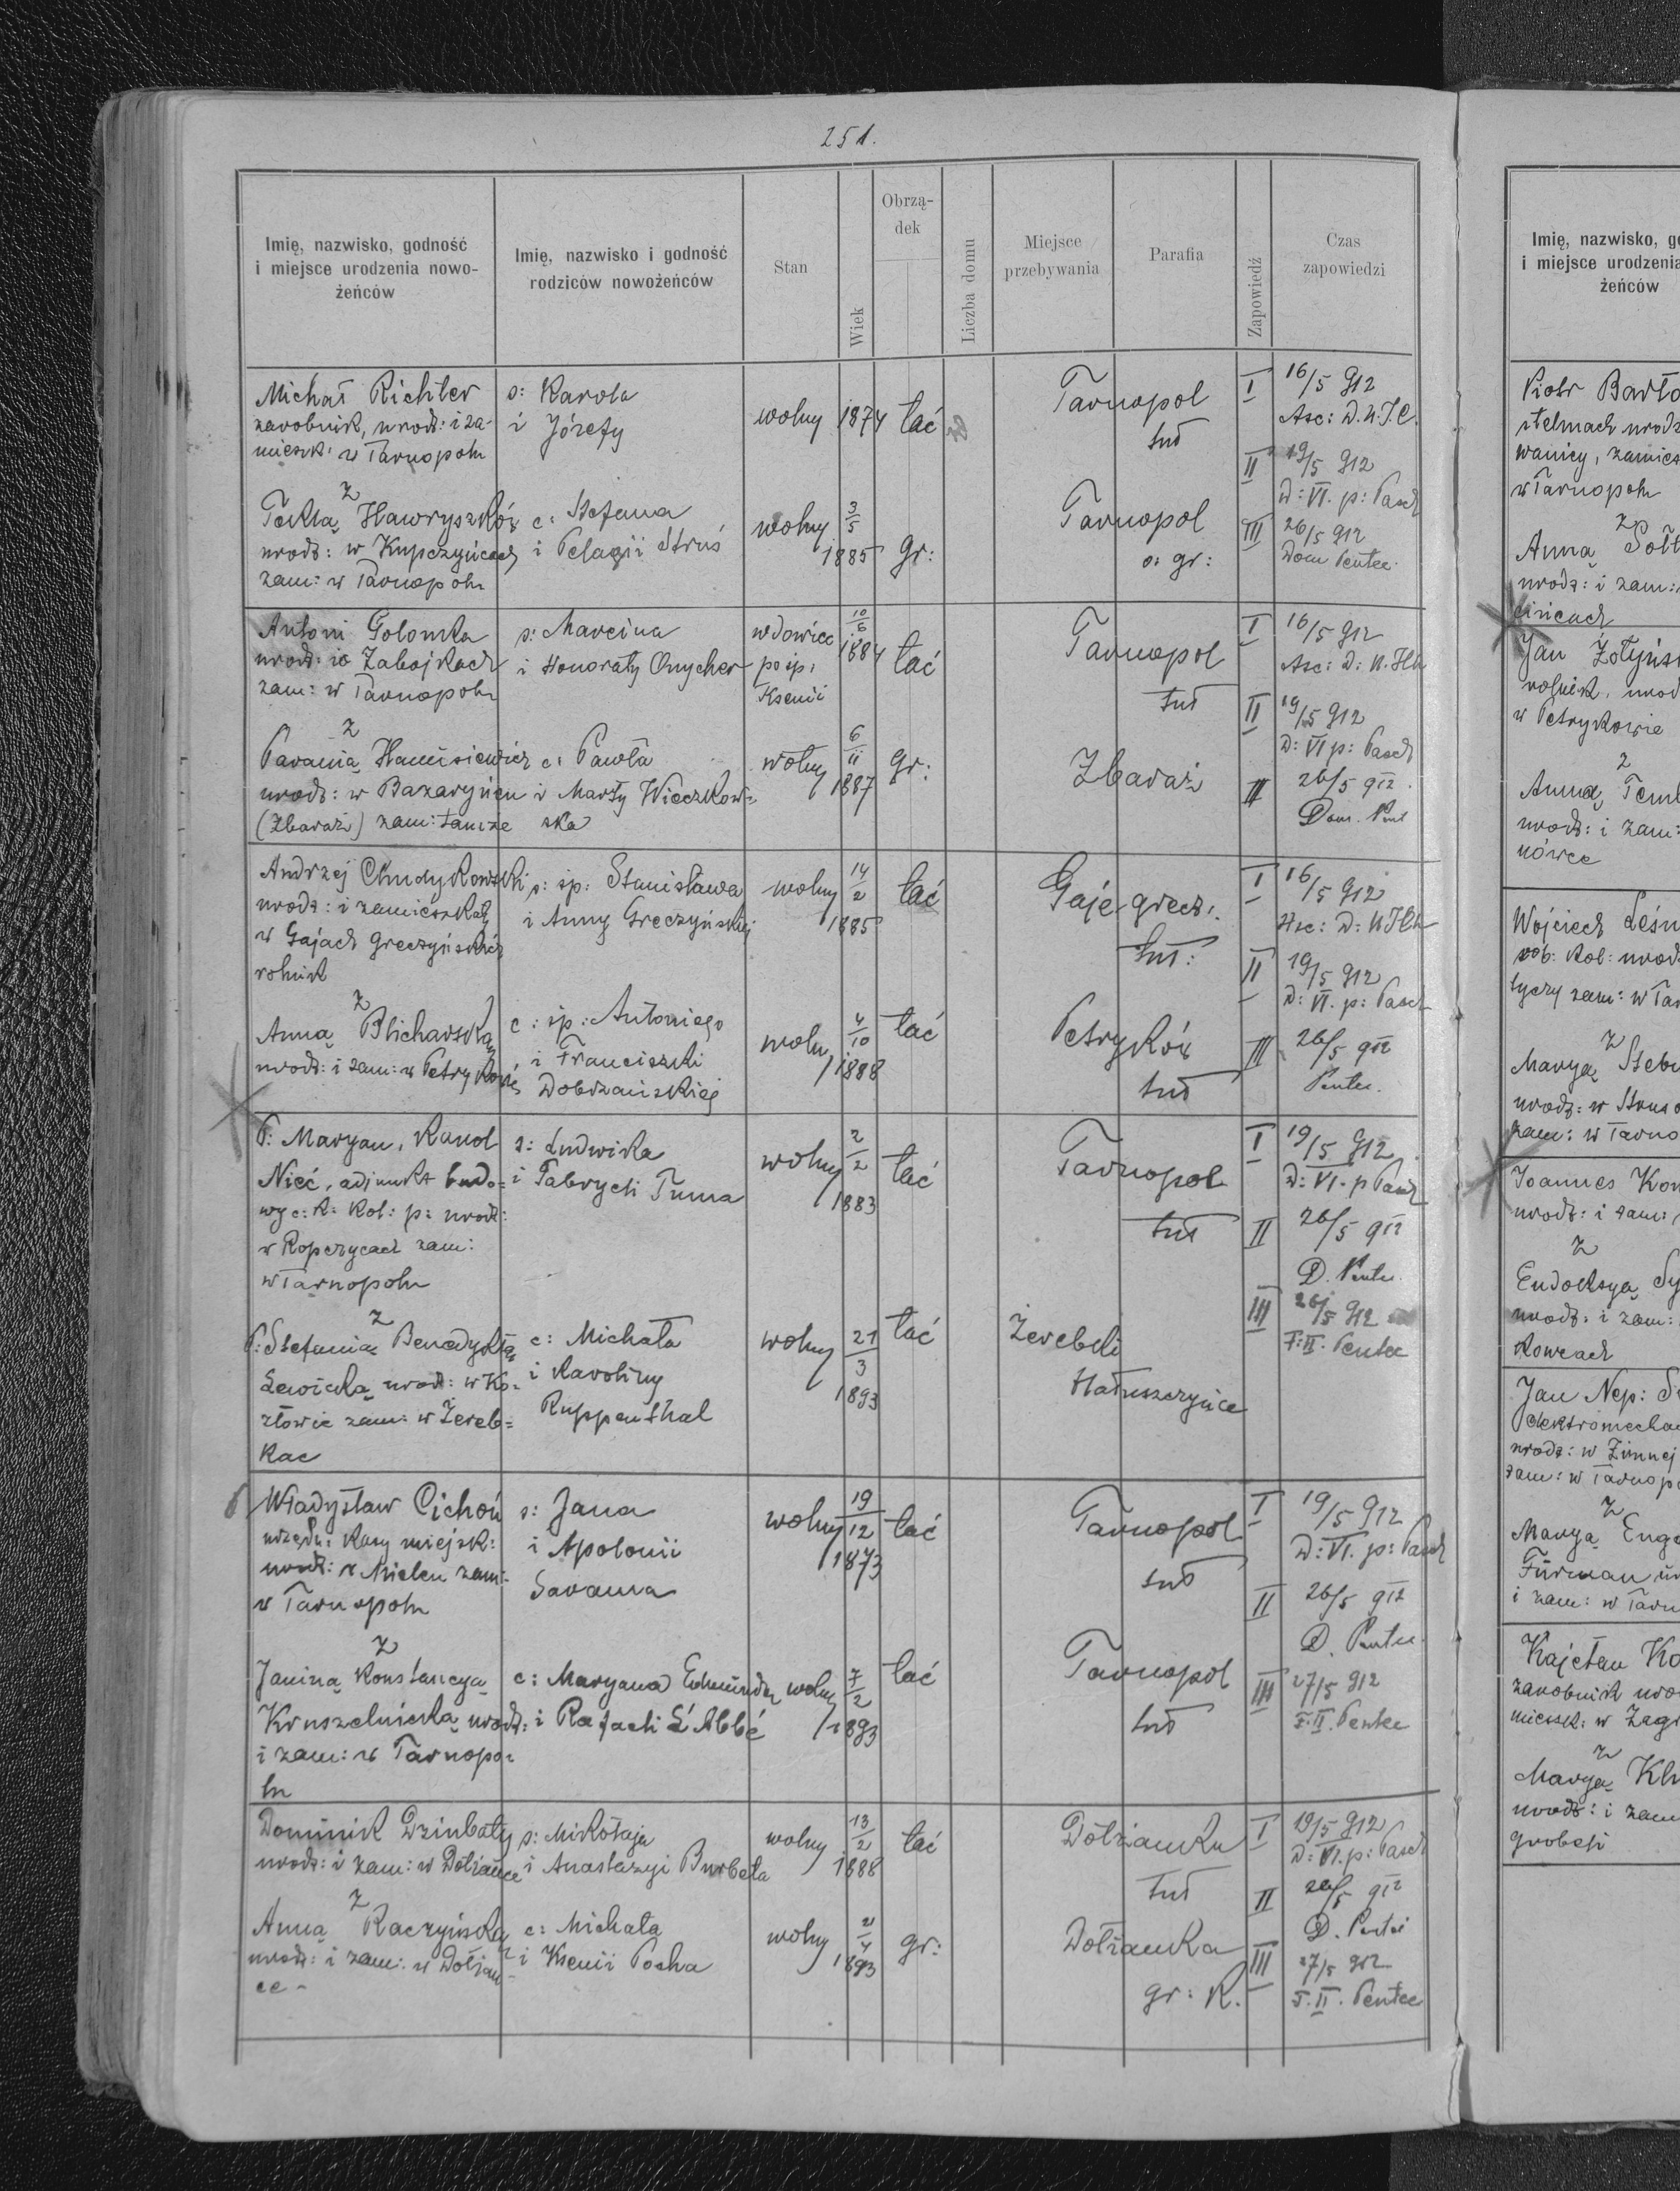 251.
Imię, nazwisko, godność
i miejsce urodzenia nowo-
żeńców
Imię, nazwisko i godność
rodziców nowożeńców
Stan
Wiek
Obrzą-
dek
Liczba domu
Miejsce
przebywania
Parafia
Zapowiedź
Czas
zapowiedzi
Michał Richter
zarobnik, urodz: i za-
mieszk: w Tarnopolu
s: Karola
i Józefy
wolny
1874
łać
Tarnopol
tut
I 16/5 912
Asc: D. N. J. C.
II 19/5 912
D: VI. p: Pasch
z
Teklą Hawryszków
urodz: w Kupczyńcach
zam: w Tarnopolu
c: Stefana
i Pelagii Struś
wolny
3/5
1885
gr:
Tarnopol
o: gr:
III 26/5 912
Dom Pentec.
Antoni Golomka
urodz: w Zabojkach
zam: w Tarnopolu
s: Marcina
i Honoraty Onycher
wdowiec
po śp:
Ksenii
10/6
1884
łać
Tarnopol
tut
I 16/5 912
Asc: D: N.
II 19/5 912
D: VI p: Pasch
z
Paranią
urodz: w Bazaryńcu
(Zbaraż) zam: tamże
c: Pawła
i Marty Wieczkow=
ska
wolny
6/11
1887
gr:
Zbaraż
III 26/5 912.
Dom. Pent
Andrzej Chudykowski
urodz: i zamieszkały
w Gajach Greczyńskich
rolnik
s: śp: Stanisława
i Anny Greczyńskiej
wolny
14/2
1885
łać
Gaje grecz:
tut:
I 16/5 912
Asc: D: N
II 19/5 912
D: VI. p: Pasch
z
Anną Blicharską
urodz: i zam: w Petrykowie
c: śp: Antoniego
i Franciszki
Dobrzańskiej
wolny
4/10
1888
łać
Petryków
tut
III 26/5 912
Pentec.
P: Maryan, Karol
Nieć, adjunkt budo=
wy c: k: kol: p: urodz:
w Ropczycach zam:
w Tarnopolu
s: Ludwika
i Fabrycti Tuma
wolny
2/2
1883
łać
Tarnopol
tut
I 19/5 912
D: VI. p Pasch
II 26/5 912
D. Pentec.
III 26/5 912
F: II. Pentec
z
P: Stefanią Benedyktą
Lewicką urodz: w Ko=
złowie zam: w Żereb=
kac
c: Michała
i Karoliny
Ruppenthal
wolny
21/3
1893
łać
Żerebki
Hałuszczyńce
Władysław Cichoń
urzędn: kasy miejsk:
urodz: w Mielcu zam:
w Tarnopolu
s: Jana
i Apolonii
Sarama
wolny
19/12
1873
łać
Tarnopol
tut
I 19/5 912
D: VI. p: Pasch
II 26/5 912
D. Pentec.
z
Janiną Konstancyą
Kruszelnicką urodz:
i zam: w Tarnopo=
lu
c: Maryana Edmunda
i Rafaeli L'Abbé
wolny
7/2
1893
łać
Tarnopol
tut
III 27/5 912
F: II. Pentec
Dominik Dziubaty
urodz: i zam: w Dołżance
s: Mikołaja
i Anastazyi Burbeła
wolny
13/2
1888
łać
Dołżanka
tut
I 19/5 912
D: VI. p: Pasch
II 26/5 912
D. Pentec
z
Anną Raczyńską
urodz: i zam: w Dołżan=
ce -
c: Michała
i Ksenii Pocha
wolny
21/4
1893
gr:
Dołżanka
gr: K.
III 27/5 912
F. II. Pentec
Imię, nazwisko, go
i miejsce urodzenia
żeńców
Piotr
stelmach urodz
wanicy, zamies
w Tarnopolu
z
Anną
urodz: i zam:
Jan
rolnik, urod
w Petrykowie
z
Anną
urodz: i zam:
Wojciech
rob: kol: urodz
zam: w Tar
z
Maryą
urodz: w
zam: w Tarno
Joannes
urodz: i zam:
z
Eudoksyą
urodz: i zam:
Jan Nep:
elektromecha
urodz: w Zimnej
zam: w Tarnop
z
Maryą
Fürman
i zam: w Tarn
Kajetan
zarobnik uro
mieszk: w
z
Maryą
urodz: i zam